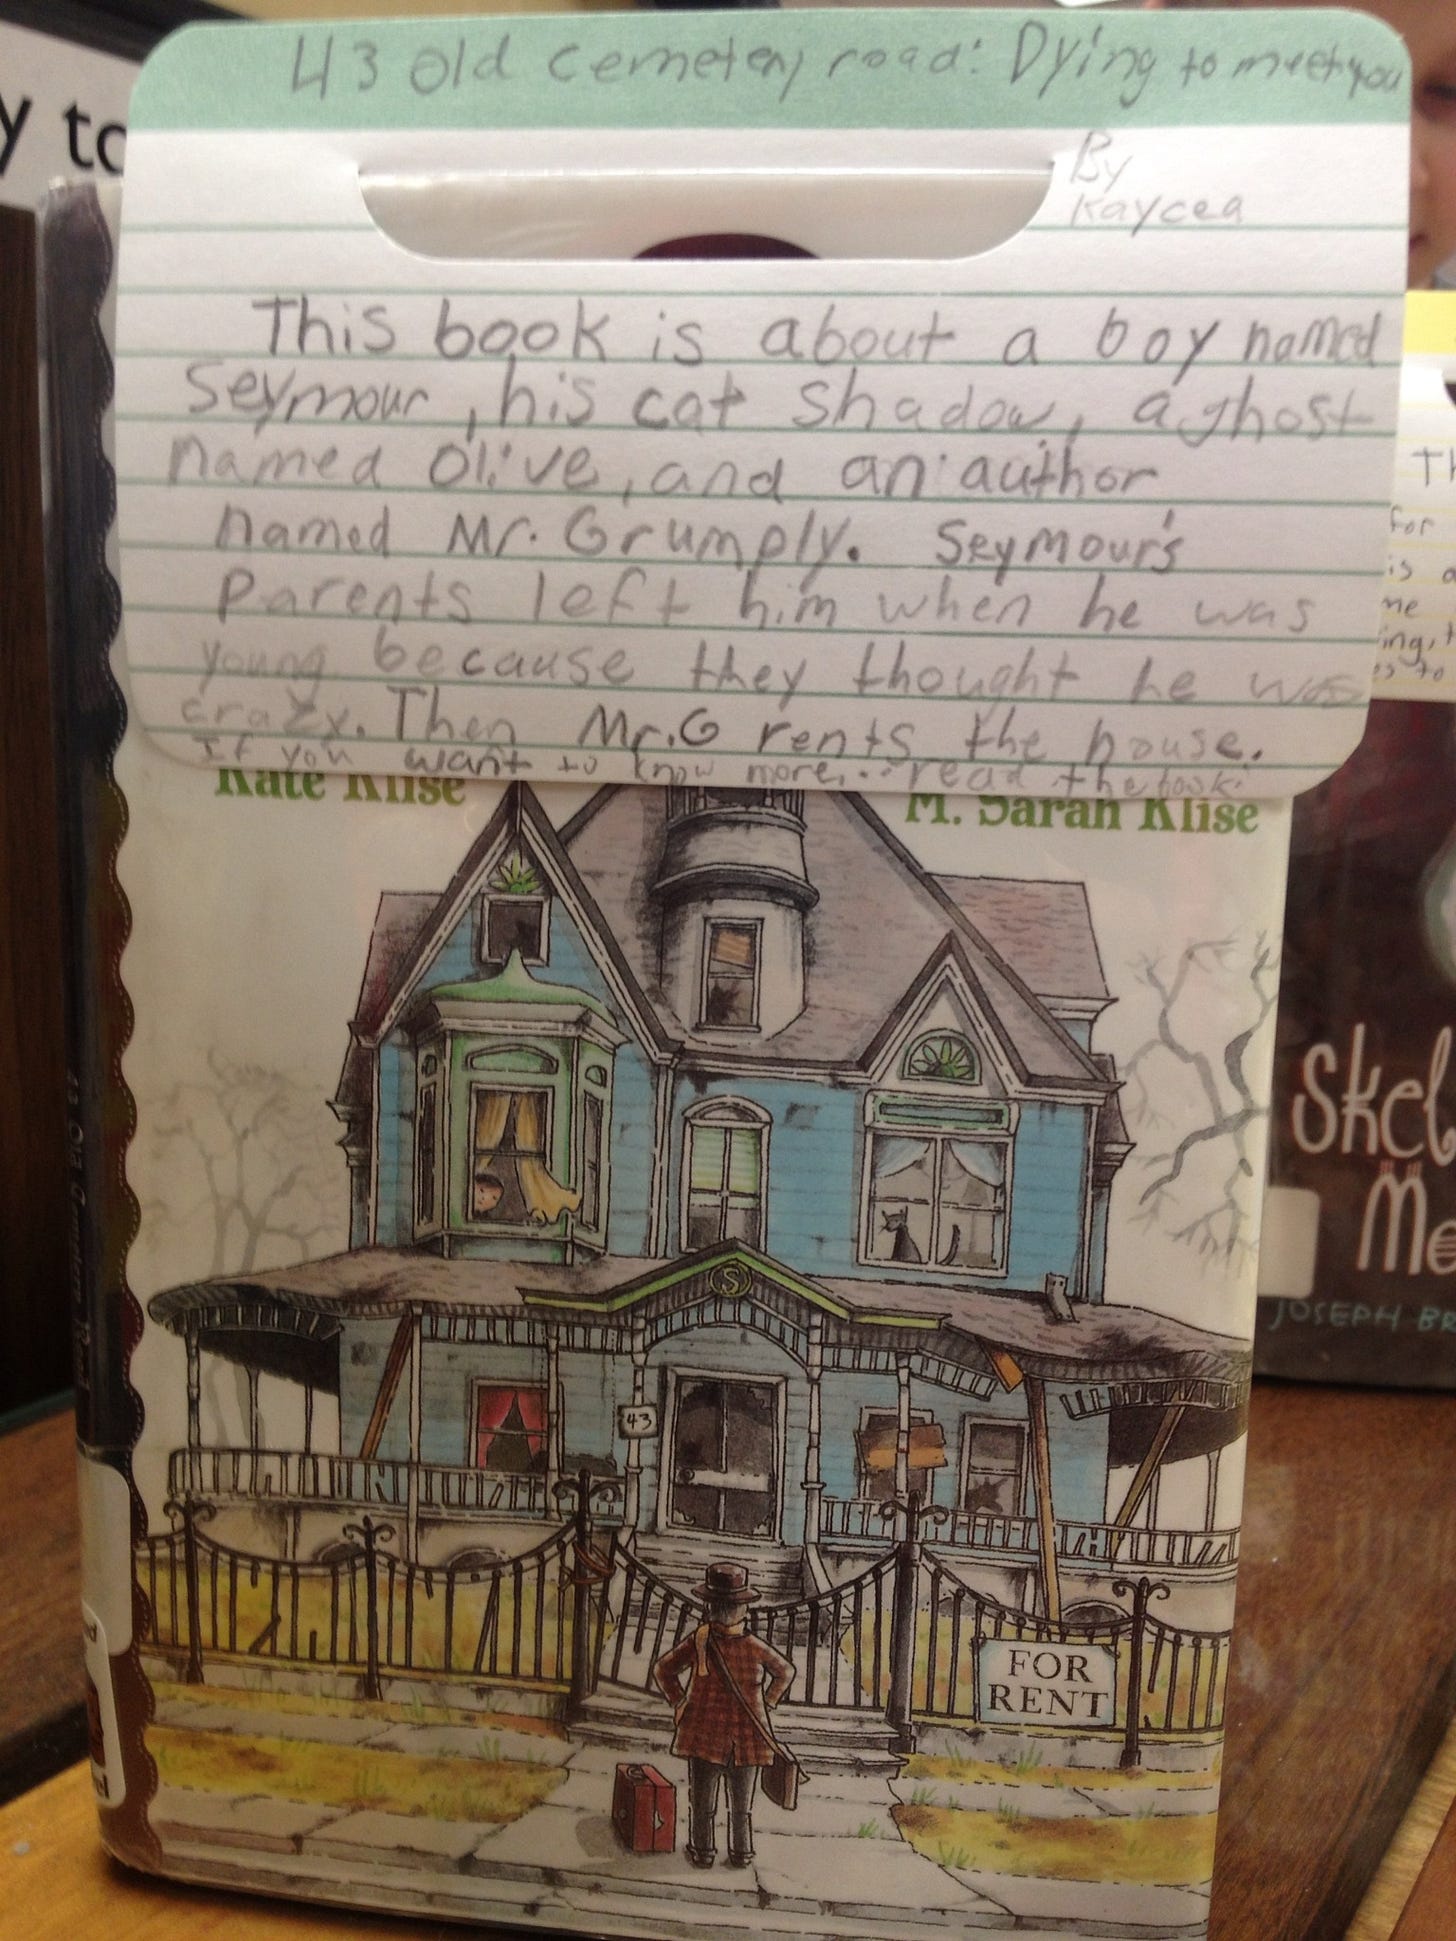 43 old cemetery road: Dying to meet you
By
Kaycea
This book is about a boy named
Seymour, his cat Shadow, a ghost
named Olive, and an author
named Mr. Grumply. Seymour's
parents left him when he was
young because they thought he was
crazy. Then Mr.G rents the house.
If you want to know more... read the book.
Kate Klise
M. Sarah Klise
S
43
FOR
RENT
y to
Th
for
is a
me
ing,
to
Skel
Me
JOSEPH BR